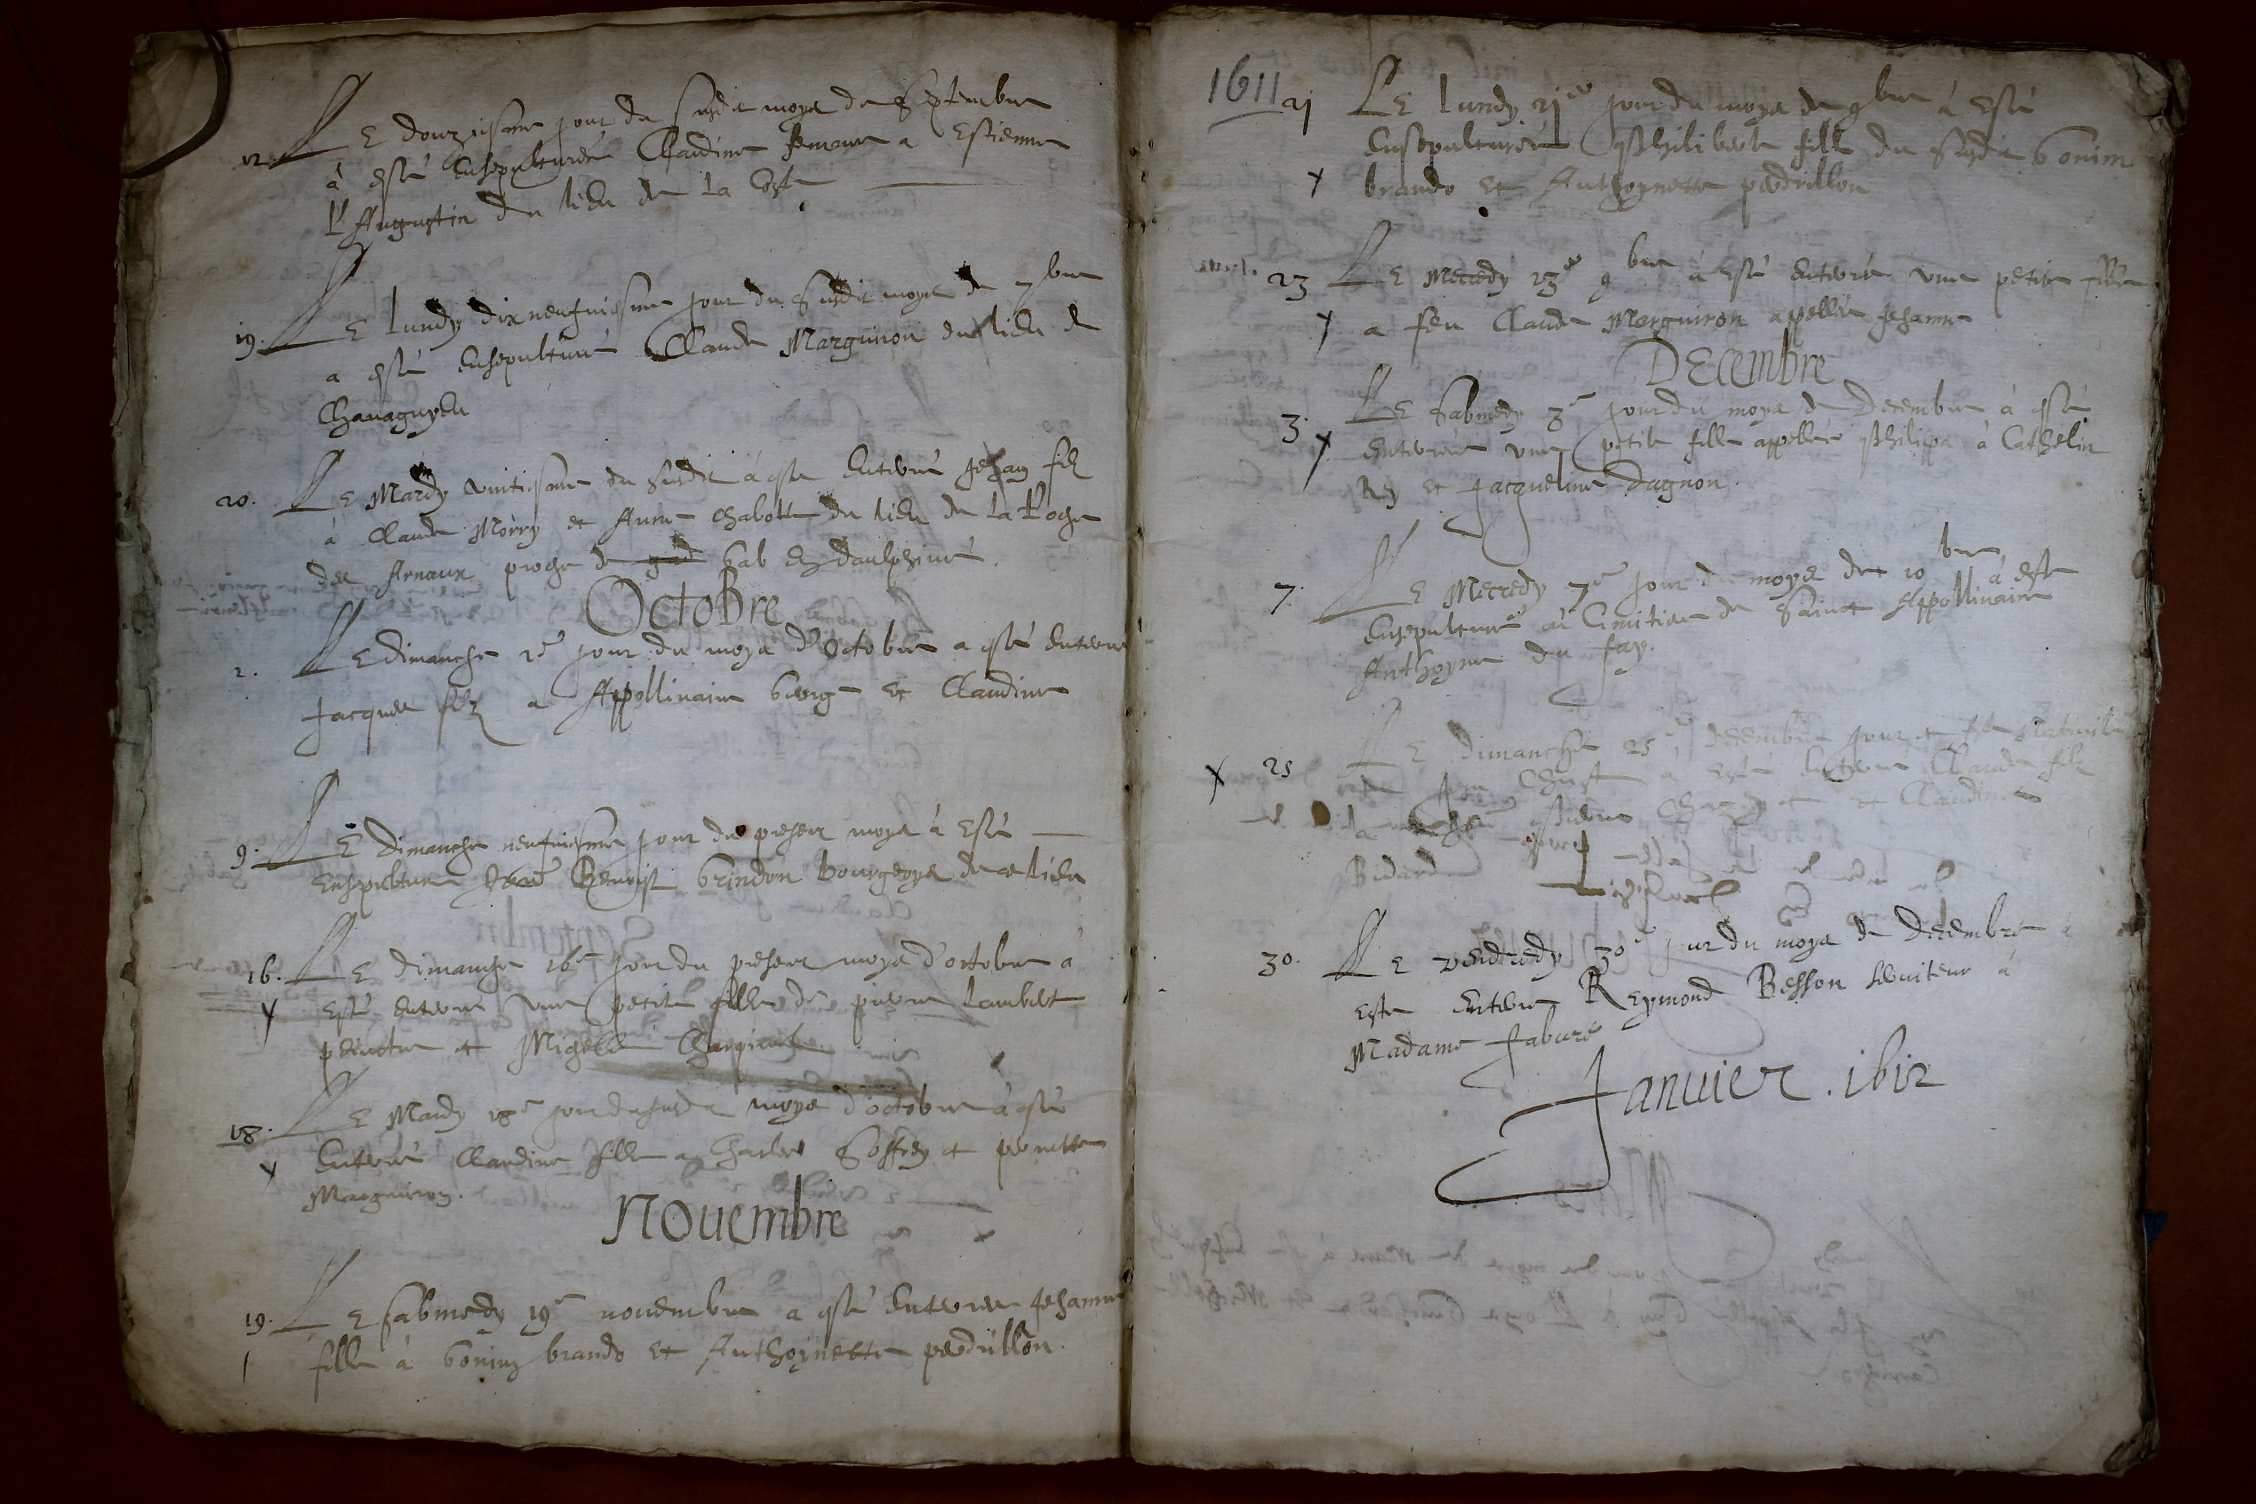 12. LE douziesme jour du susdit moys de Septembre
à esté ensepulturée Claudine femme a Estienne
l'Augustin du lieu de la Coste
19. LE lundy dix neufviesme jour du susdit moys de 7bre
a esté ensepulturé Claude Marguiron du lieu de
Chavagnyeu
20. LE Mardy vintiesme du susdit à esté enterré Jehan filz
à Claude Morry et Anne Chabotte du lieu de la Roche
des Arnaux proche de Gab en daulphiné.
Octobre
2. LE dimanche 2e jour du moys d'Octobre a esté enterré
Jacques filz a Appollinaire George et Claudine
9. LE Dimanche neufviesme jour du present moys à Esté
ensepulturé Benoist Grindon bourgeoys de ce lieu
16. LE dimanche 16e jour du present moys d'octobre à
Esté enterré une petite fille de pierre Lambert
peinctre et Migelle
18. LE Mardy 18e jour du susdit moys d'octobre à esté
Enterré Claudine fille a Charles Soffrey et perrette
Marguiron.
Novembre
19. LE sabmedy 19e novembre a esté enterrée Jehanne
fille à Gonin brando et Anthoynette perdrillon.
1611
21 LE lundy 21e jour du moys de 9bre à Esté
Ensepulturée Philiberte fille du susdit Gonin
brando et Anthoynette perdrillon
23 LE Mecredy 23e 9bre à Esté enterré une petite fille
a feu Claude Marguiron apellée Jehanne
DEcembre
3. LE Sabmedy 3e jour du moys de Decembre à esté
enterrée une petite fille appellée Philipa à Cathelin
Rey et Jacqueline Dagnon.
7. LE Mecredy 7e jour du moys de 10bre à esté
Ensepulturé au Cimitiere de Sainct Appollinaire
Anthoyne du fay.
25 LE dimanche 25e decembre jour et Nativité
Christ à esté enterré Claude filz
et Claudine
Bidard
30. LE vendredy 30e jour du moys de Decembre à
Este Enterré Reymond Besson serviteur à
Madame Faburé
Janvier. 1612